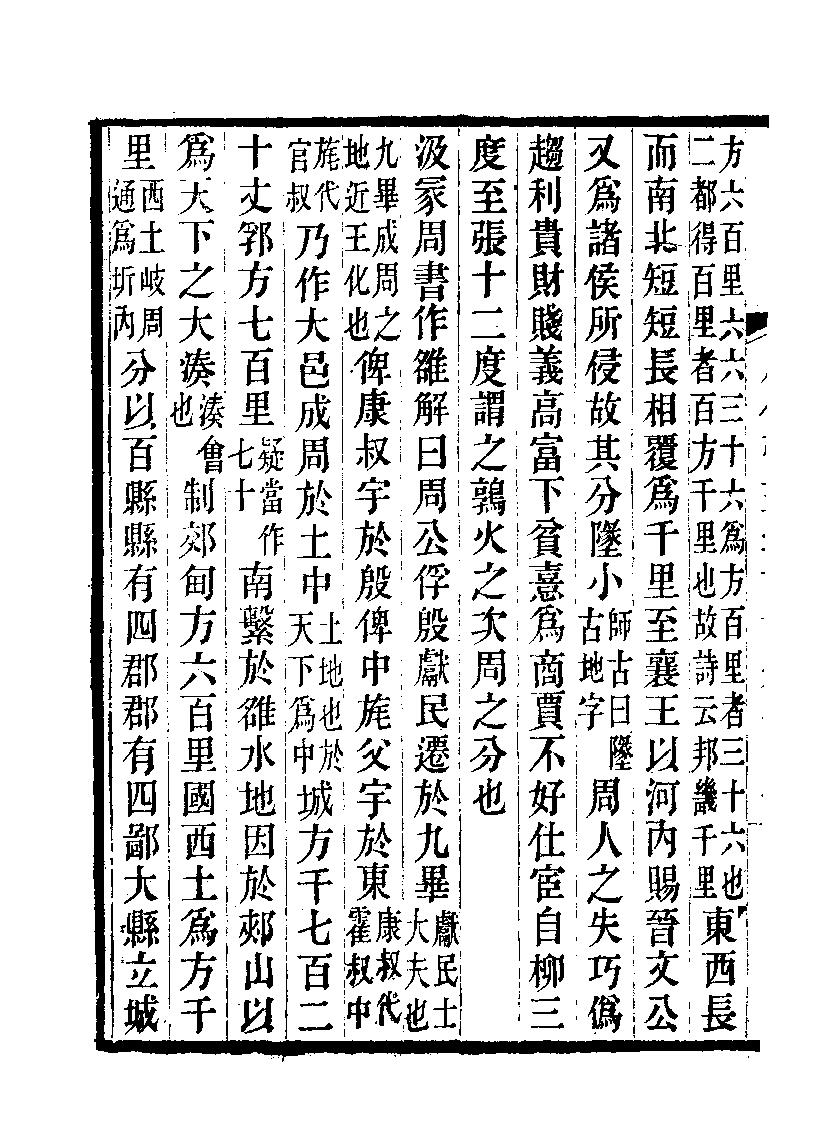 方六百里六六三十六為方百里者三十六也二都得百里者百方千里也故詩云邦畿千里東西長
而南北短短長相覆為千里至襄王以河內賜晉文公
又為諸侯所侵故其分墬小師古曰墬古地字周人之失巧偽
趨利貴財賤義高富下貧憙為商賈不好仕宦自柳三
度至張十二度謂之鶉火之次周之分也
汲冢周書作雒解曰周公俘殷獻民遷於九畢獻民士大夫也
九畢成周之地近王化也俾康叔宇於殷俾中旄父宇於東康叔代霍叔中
旄代官叔乃作大邑成周於土中土地也於天下為中城方千七百二
十丈郛方七百里疑當作七十南繫於雒水地因於郟山以
為天下之大湊湊會也制郊甸方六百里國西土為方千
里西土岐周通為圻內分以百縣縣有四郡郡有四鄙大縣立城